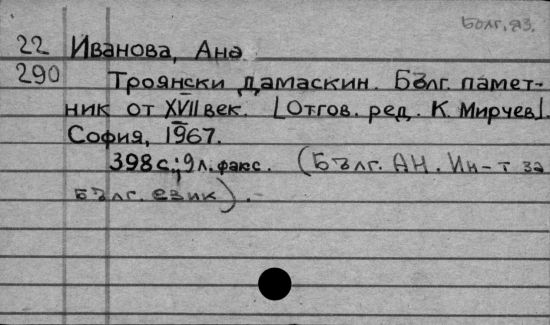 Болг. яз.
22 Иванова, Ана
290 Троянски дамаскин. Бълг. памет-
ник от XVII век. [Отгов. ред. К. Мирчев].
София, 1967.
398 с.; 9 л. факс. (Бълг. АН. Ин-т за
бълг. език). -